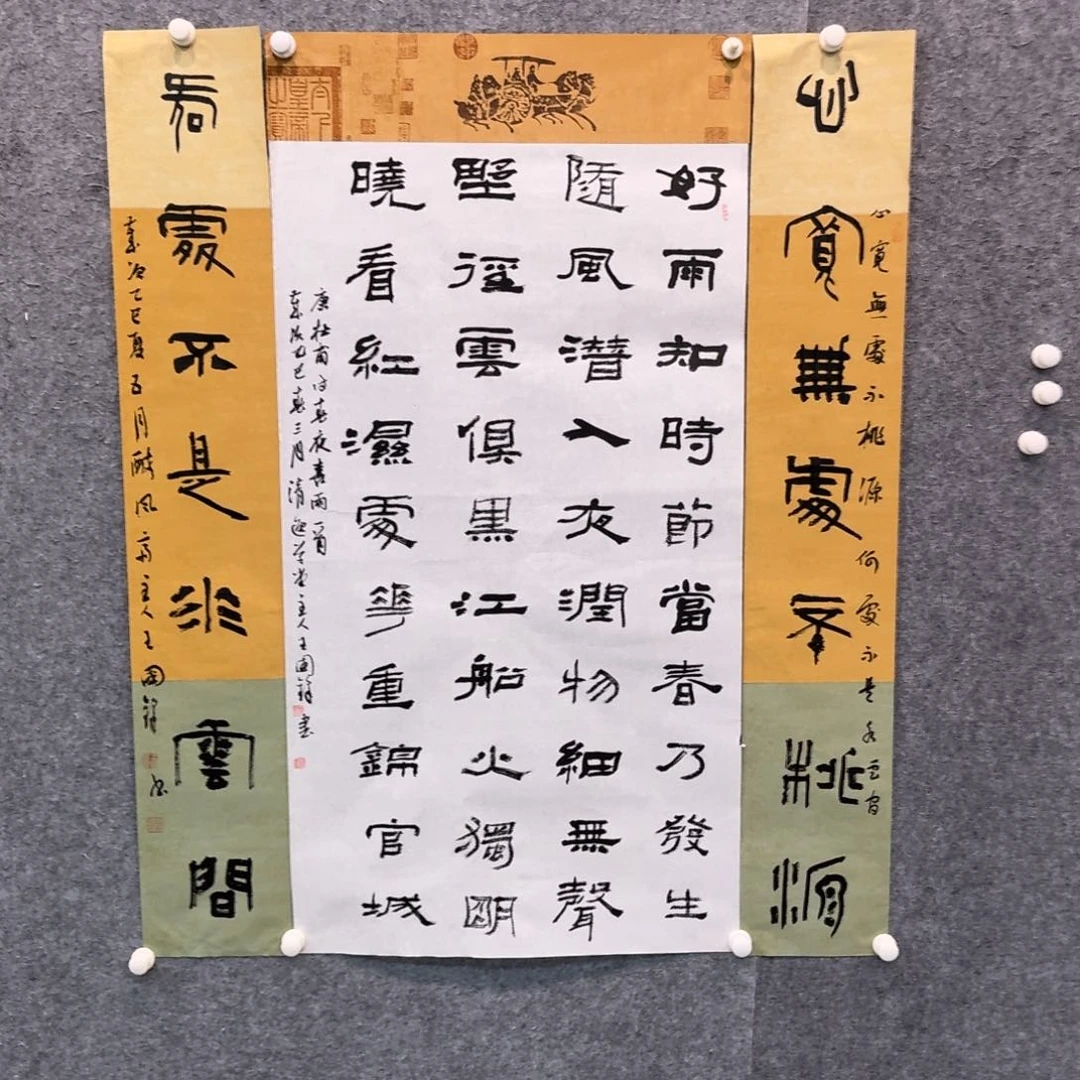 心寬無處不桃源
心寬無處不桃源何處不是水雲間
好雨知時節當春乃發生
隨風潛入夜潤物細無聲
野徑雲俱黑江船火獨明
曉看紅濕處華重錦官城
唐杜甫詩春夜喜雨一首
歲次乙巳春三月清逸草堂主人王國書
何處不是水雲間
歲次乙巳夏五月酔風齋主人王國書